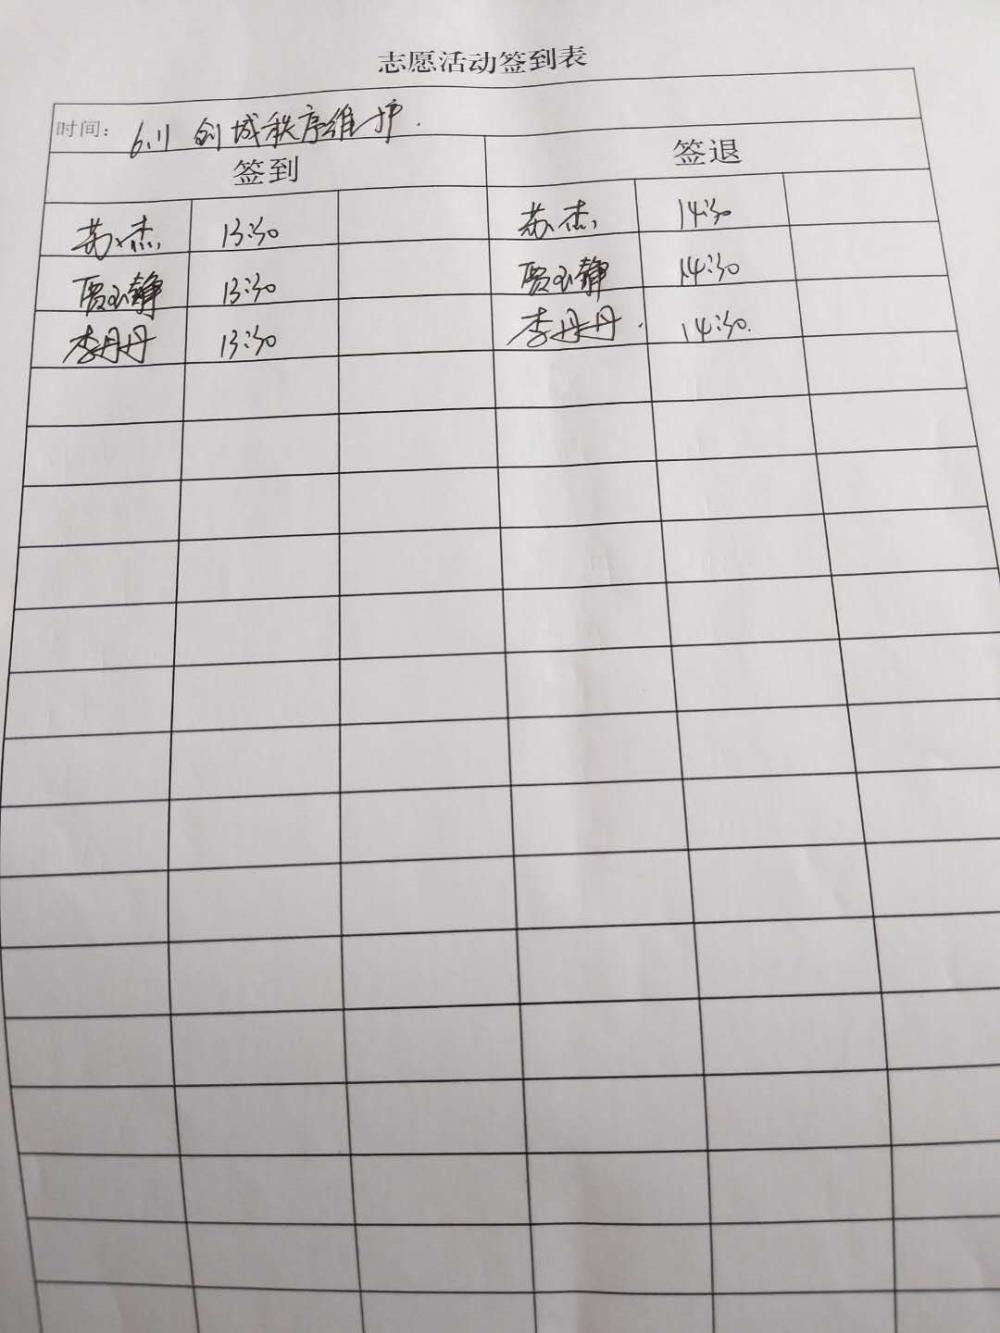 志愿活动签到表
时间： 6.11 创城秩序维护.
签到 签退
苏杰 13:30 苏杰 14:30
贾玉静 13:30 贾玉静 14:30
李丹丹 13:30 李丹丹. 14:30.